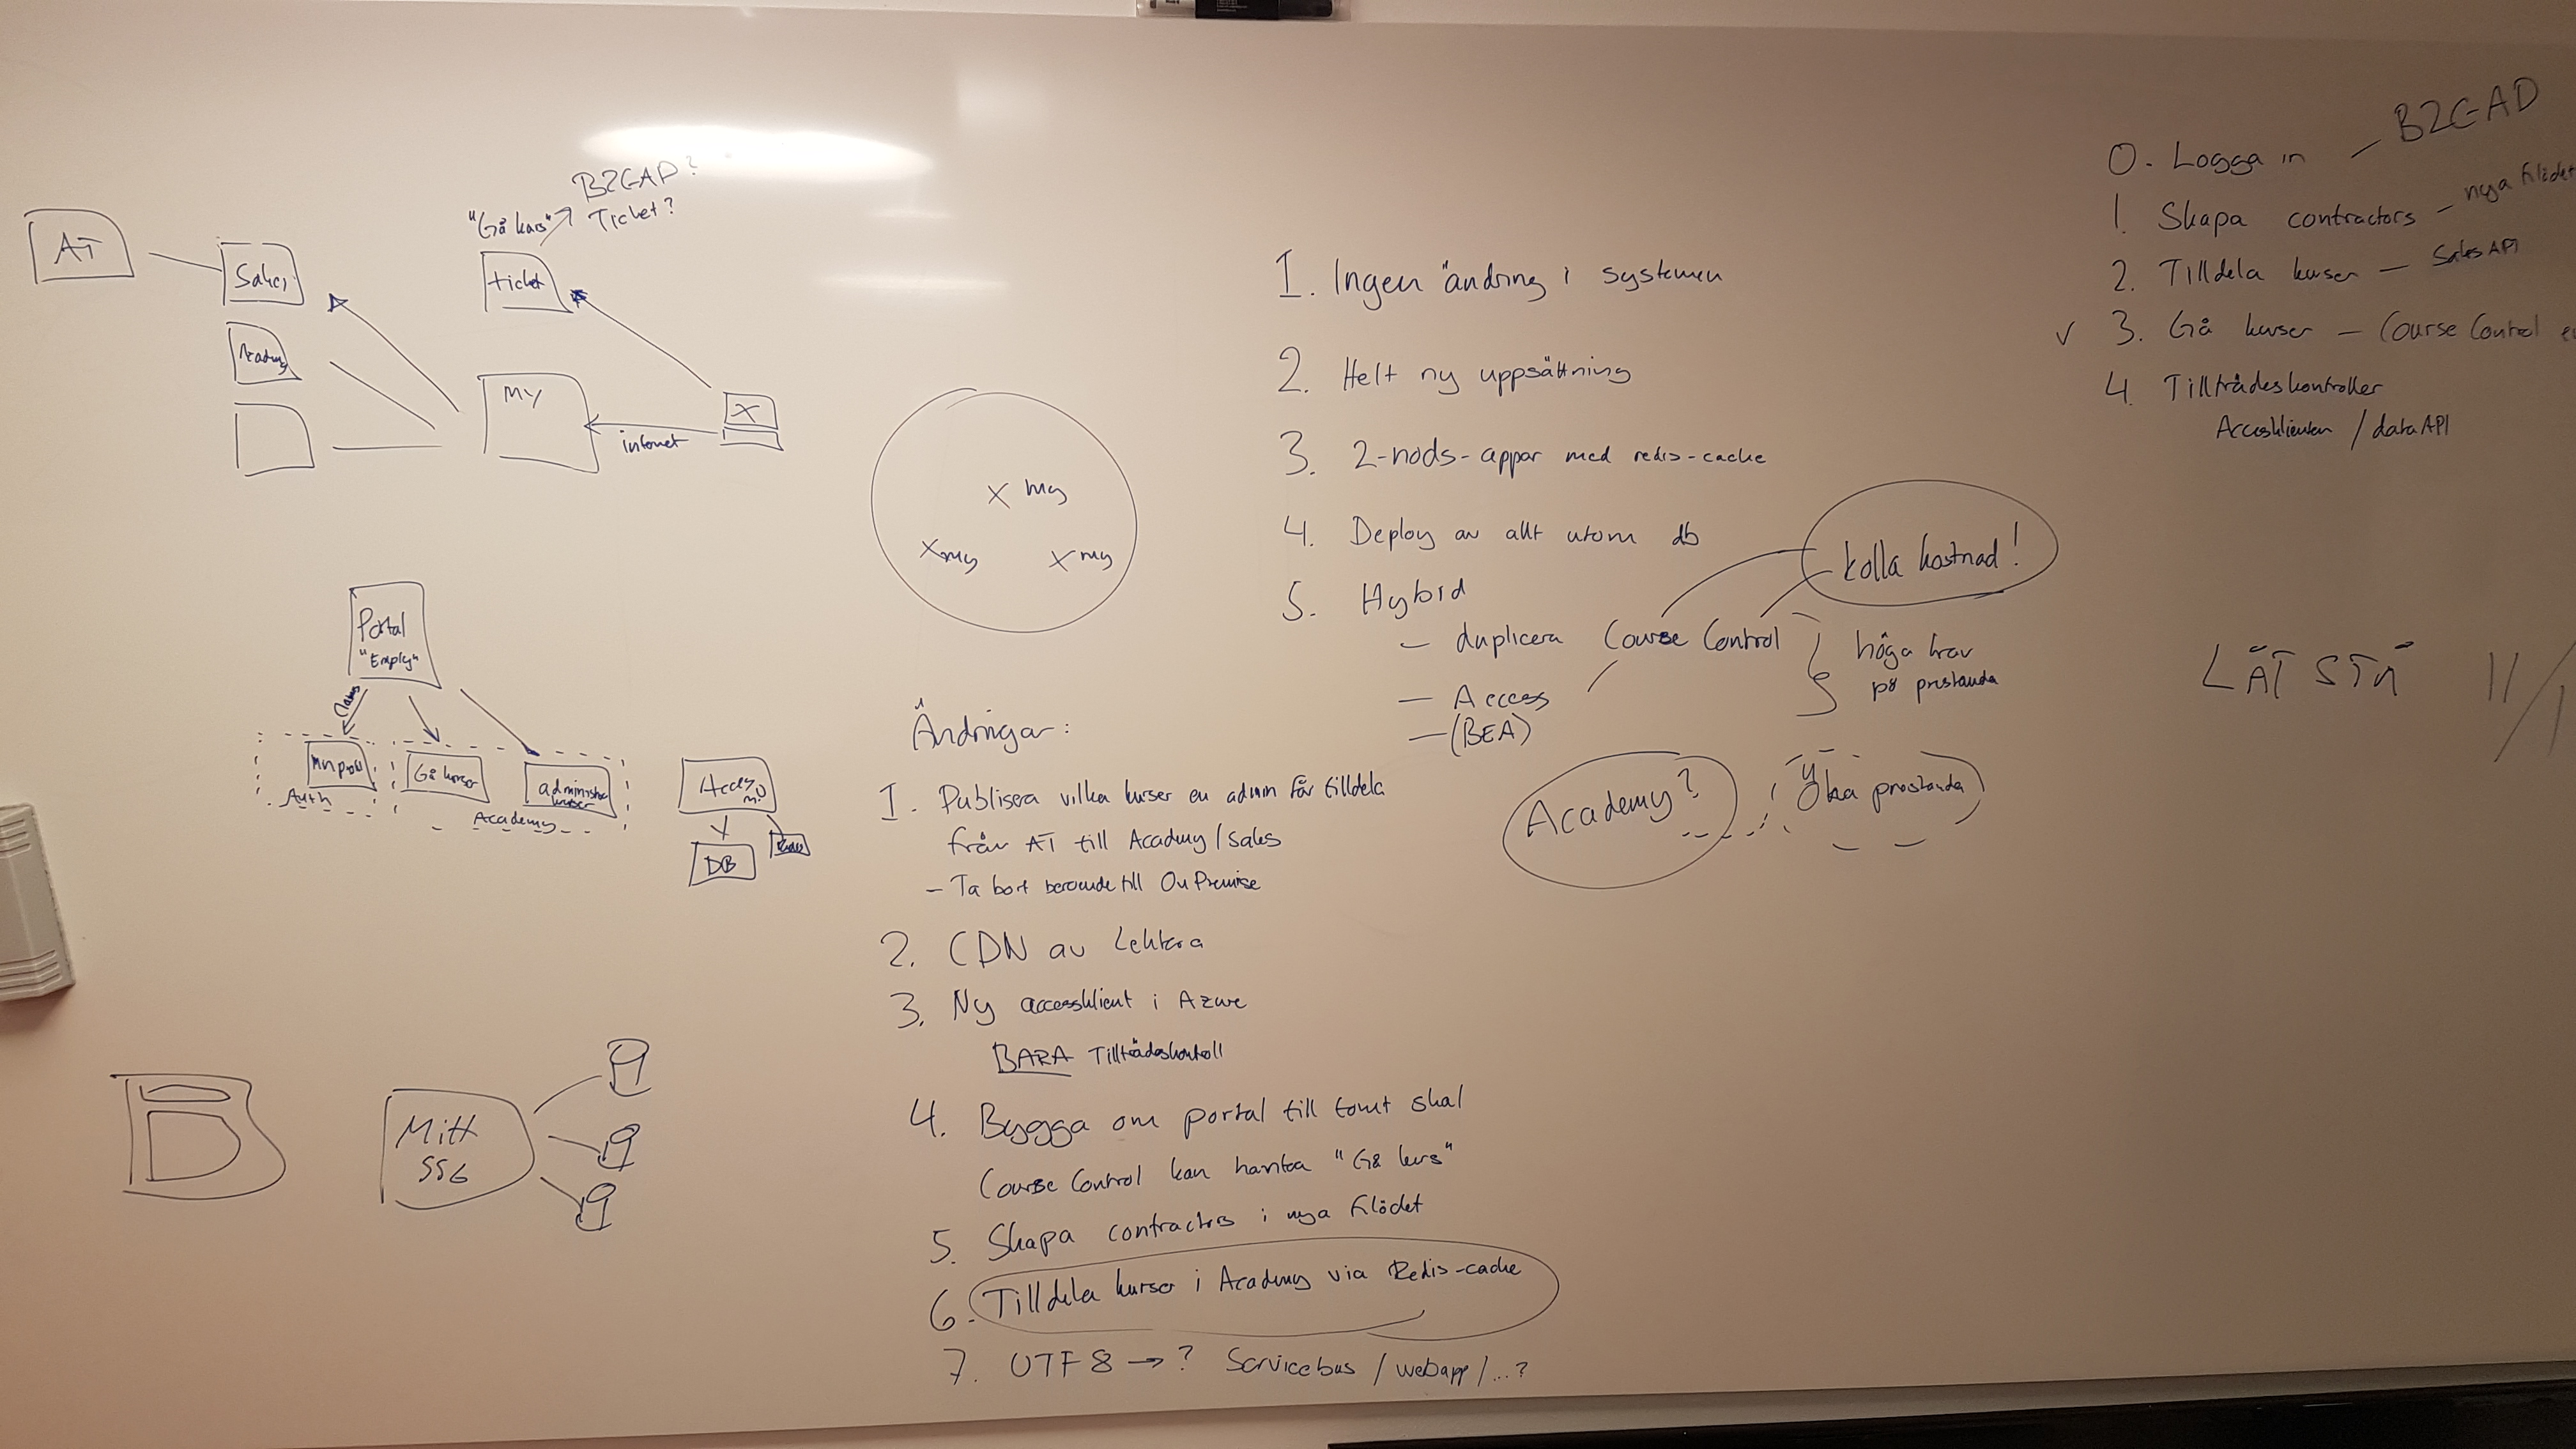 B2CAD?
"Gå kurs" Ticket?
AT
Sales
ticket
Academy
MY
X
internet
X my
X my
X my
Portal
"Empty"
Claims
Gå kurser
administrera
kurser
Auth
Academy
Access
DB
Mitt
SSG
1. Ingen ändring i systemen
2. Helt ny uppsättning
3. 2-nods-appar med redis-cache
4. Deploy av allt utom db
5. Hybrid
– duplicera Course Control
– Access
– (BEA)
kolla kostnad!
höga krav
på prestanda
Academy?
Öka prestanda
Ändringar:
1. Publisera vilka kurser en admin får tilldela
från AT till Academy/Sales
– Ta bort beroende till OnPremise
2. CDN av Lektera
3. Ny accessklient i Azure
BARA Tillträdeskontroll
4. Bygga om portal till tomt skal
Course Control kan hantea "Gå kurs"
5. Skapa contractors i nya flödet
6. Tilldela kurser i Academy via Redis-cache
7. UTF8 → ? Servicebus / webapp / ...?
0. Logga in – B2CAD
1. Skapa contractors – nya flödet
2. Tilldela kurser – Sales API
✓ 3. Gå kurser – Course Control
4. Tillträdeskontroller
Accessklienten / dataAPI
LÅT STÅ 11/1